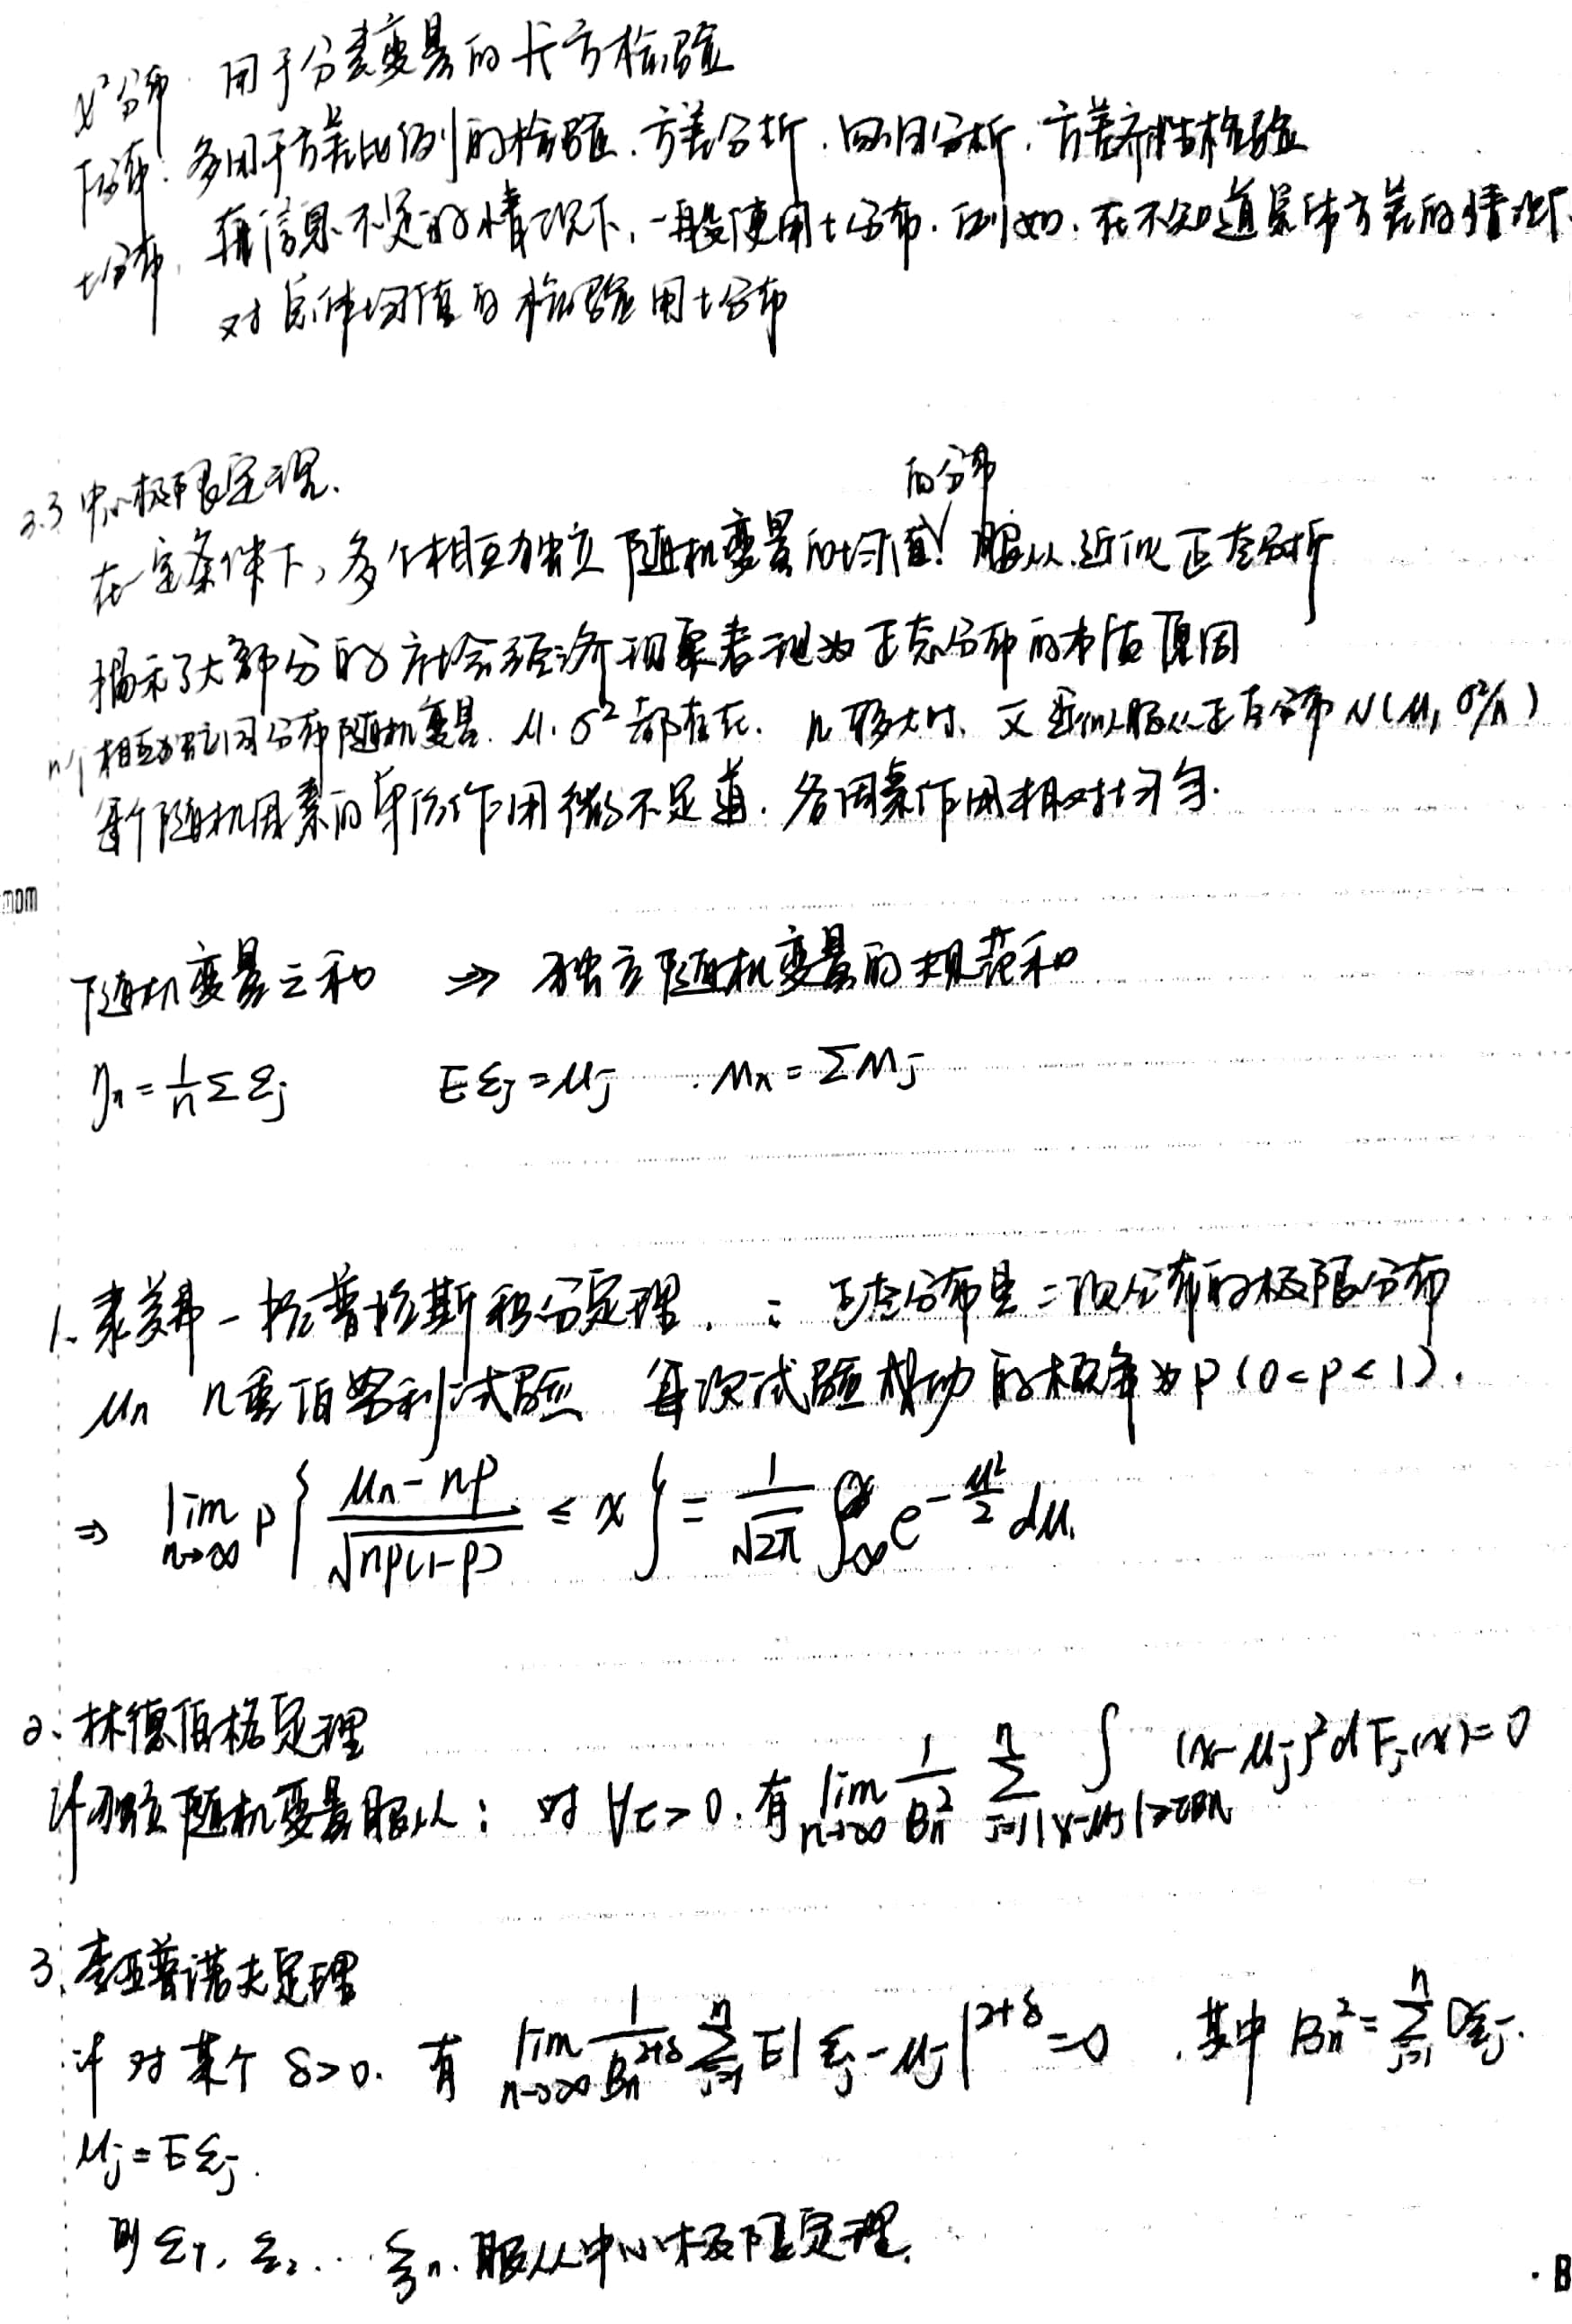 χ²分布. 用于分类变量的卡方检验
F分布: 多用于方差比例的检验. 方差分析. 回归分析. 方差齐性检验
t分布. 在信息不足的情况下, 一般使用t分布. 例如. 在不知道总体方差的情况下.
对总体均值的检验用t分布
2.3 中心极限定理.
的分布
在一定条件下, 多个相互独立随机变量的均值√服从近似正态分析
揭示了大部分的社会经济现象表现为正态分布的本质原因
n个相互独立同分布随机变量. μ. σ² 都存在. n 够大时. x̄ 近似服从正态分布 N(μ, σ²/n)
每个随机因素的单位作用微不足道. 各因素作用相对均匀.
mom
随机变量之和 ⇒ 独立随机变量的规范和
ηn = 1/n Σ ξj Eξj = μj . Mn = Σ Mj
1. 隶美弗-拉普拉斯积分定理. : 正态分布是二项分布的极限分布
μn n重伯努利试验 每次试验成功的概率为 p (0<p<1).
⇒ lim n→∞ P{ (μn - np) / √(np(1-p)) ≤ x } = 1/√2π ∫_{-∞}^{x} e^{-u²/2} du.
2. 林德伯格定理
if 独立随机变量服从: 对 ∀τ>0. 有 lim n→∞ 1/Bn² Σ_{j=1}^{n} ∫_{|x-μj|>τBn} (x-μj)² dFj(x) = 0
3. 李亚普诺夫定理
if 对某个 δ>0. 有 lim n→∞ 1/Bn^{2+δ} Σ_{j=1}^{n} E|ξj - μj|^{2+δ} = 0 . 其中 Bn² = Σ_{j=1}^{n} Dξj.
μj = Eξj.
则 ξ1, ξ2. ... ξn. 服从中心极限定理.
· B